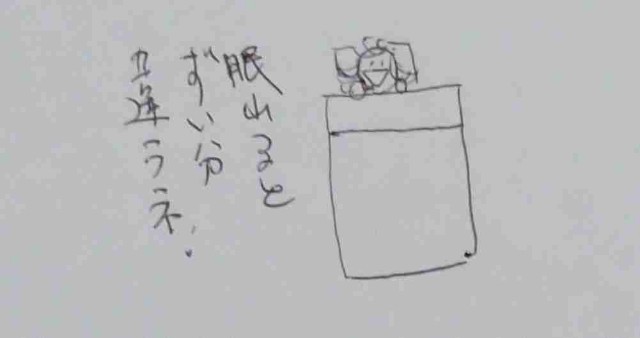 眠れると
ずい分
違うネ.